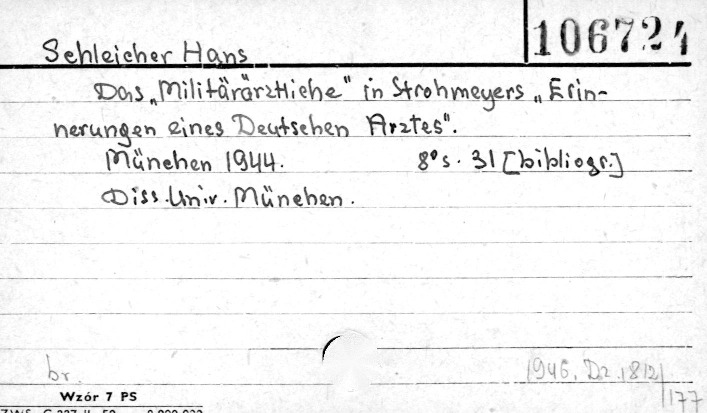 106724
Schleicher Hans
Das „Militärärztliche" in Strohmeyers „Erin-
nerungen eines Deutschen Arztes".
München 1944. 8° s. 31 [bibliogr.]
Diss. Univ. München.
br.
1946. Dz. 1812/
177
Wzór 7 PS